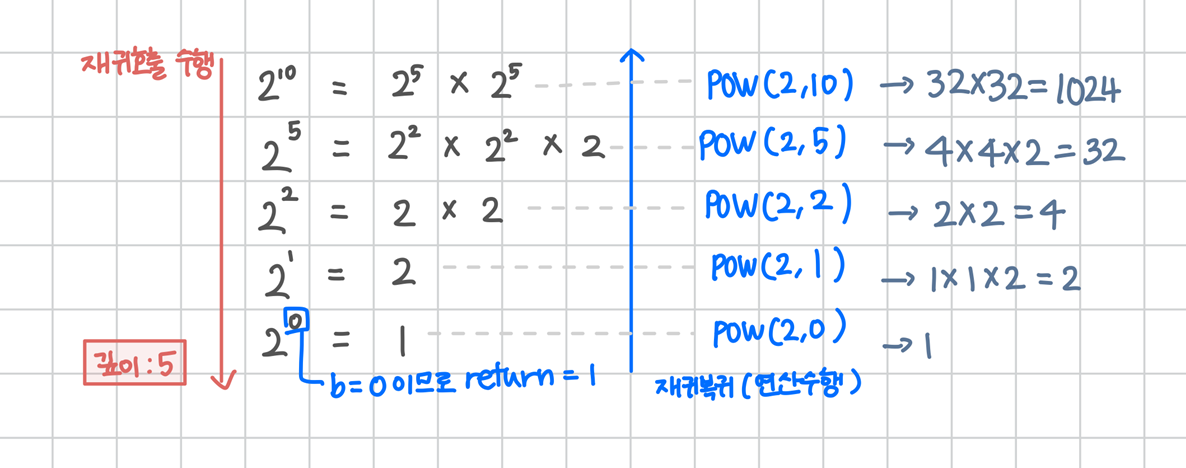 재귀호출 수행
2¹⁰ = 2⁵ × 2⁵ POW(2,10) → 32×32=1024
2⁵ = 2² × 2² × 2 POW(2,5) → 4×4×2=32
2² = 2 × 2 POW(2,2) → 2×2=4
2¹ = 2 POW(2,1) → 1×1×2=2
2⁰ = 1 POW(2,0) → 1
깊이:5
b=0이므로 return=1
재귀복귀(연산수행)